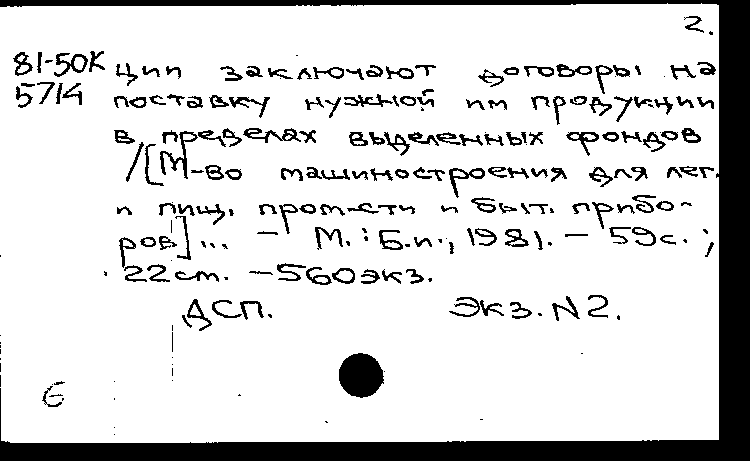 2.
81-50К ции заключают договоры на
5714 поставку нужной им продукции
в пределах выделенных фондов
/[М-во машиностроения для лег.
и пищ. пром-сти и быт. прибо-
ров]... – М. : Б.и., 1981. – 59с. ;
22см. – 560экз.
ДСП. Экз. N2.
6